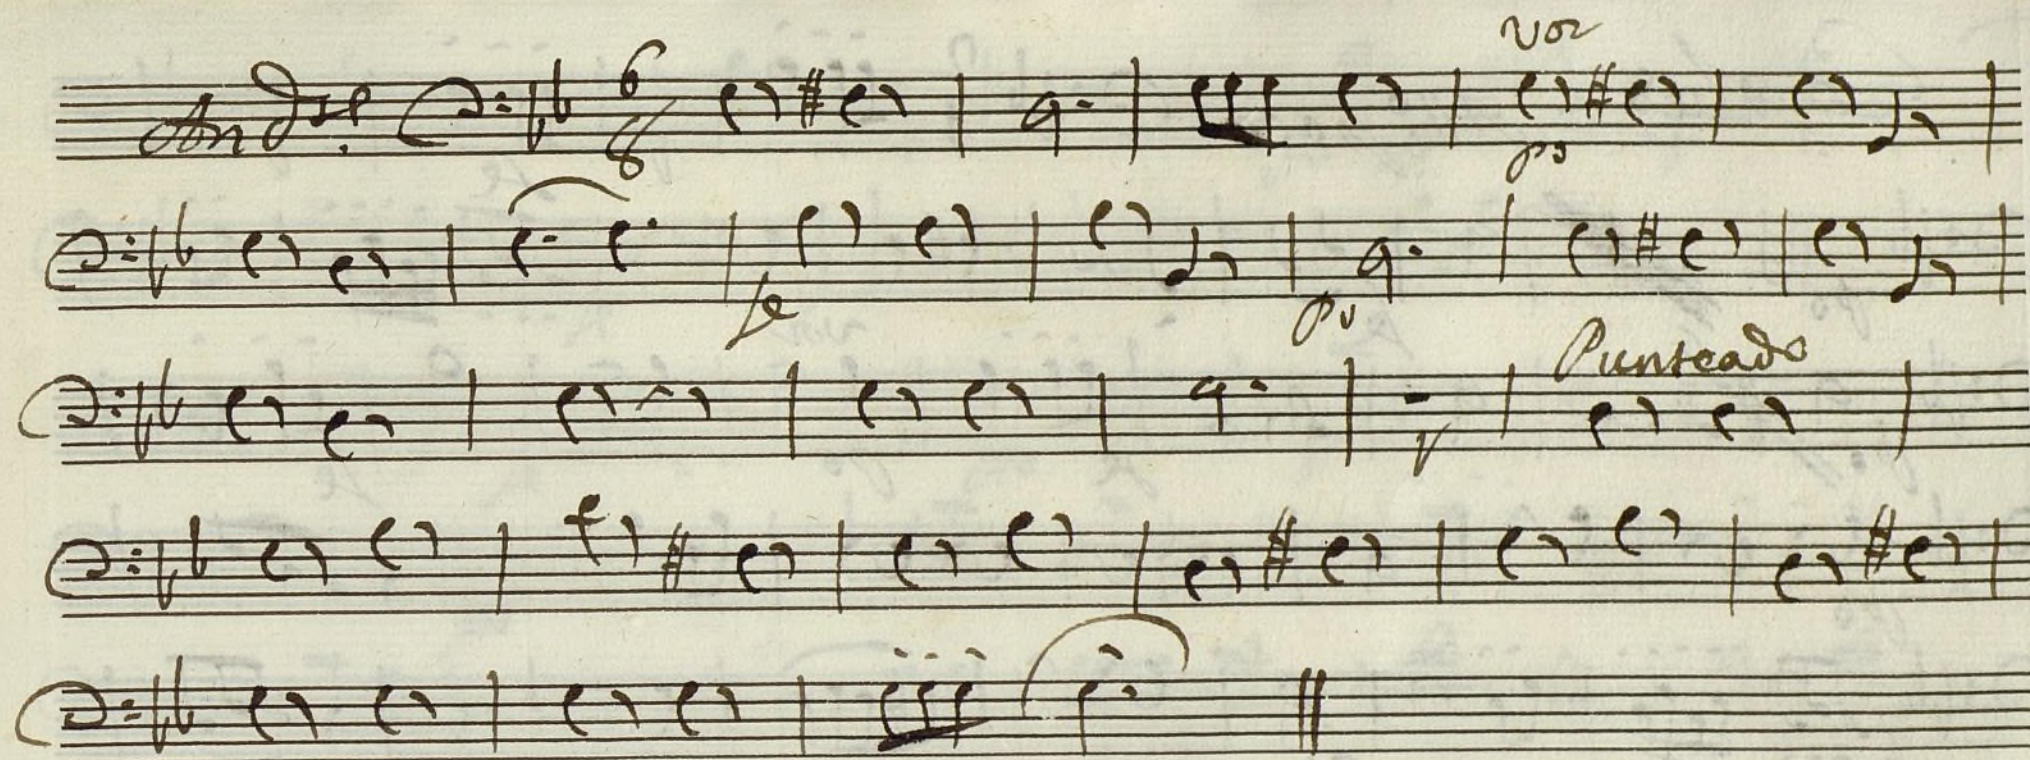 And.te 6/8 voz
po
fe po
Punteado